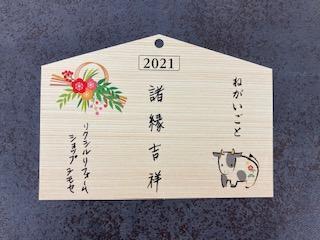 2021
ねがいごと
諸縁吉祥
リクシルリフォーム
ショップ エモセ